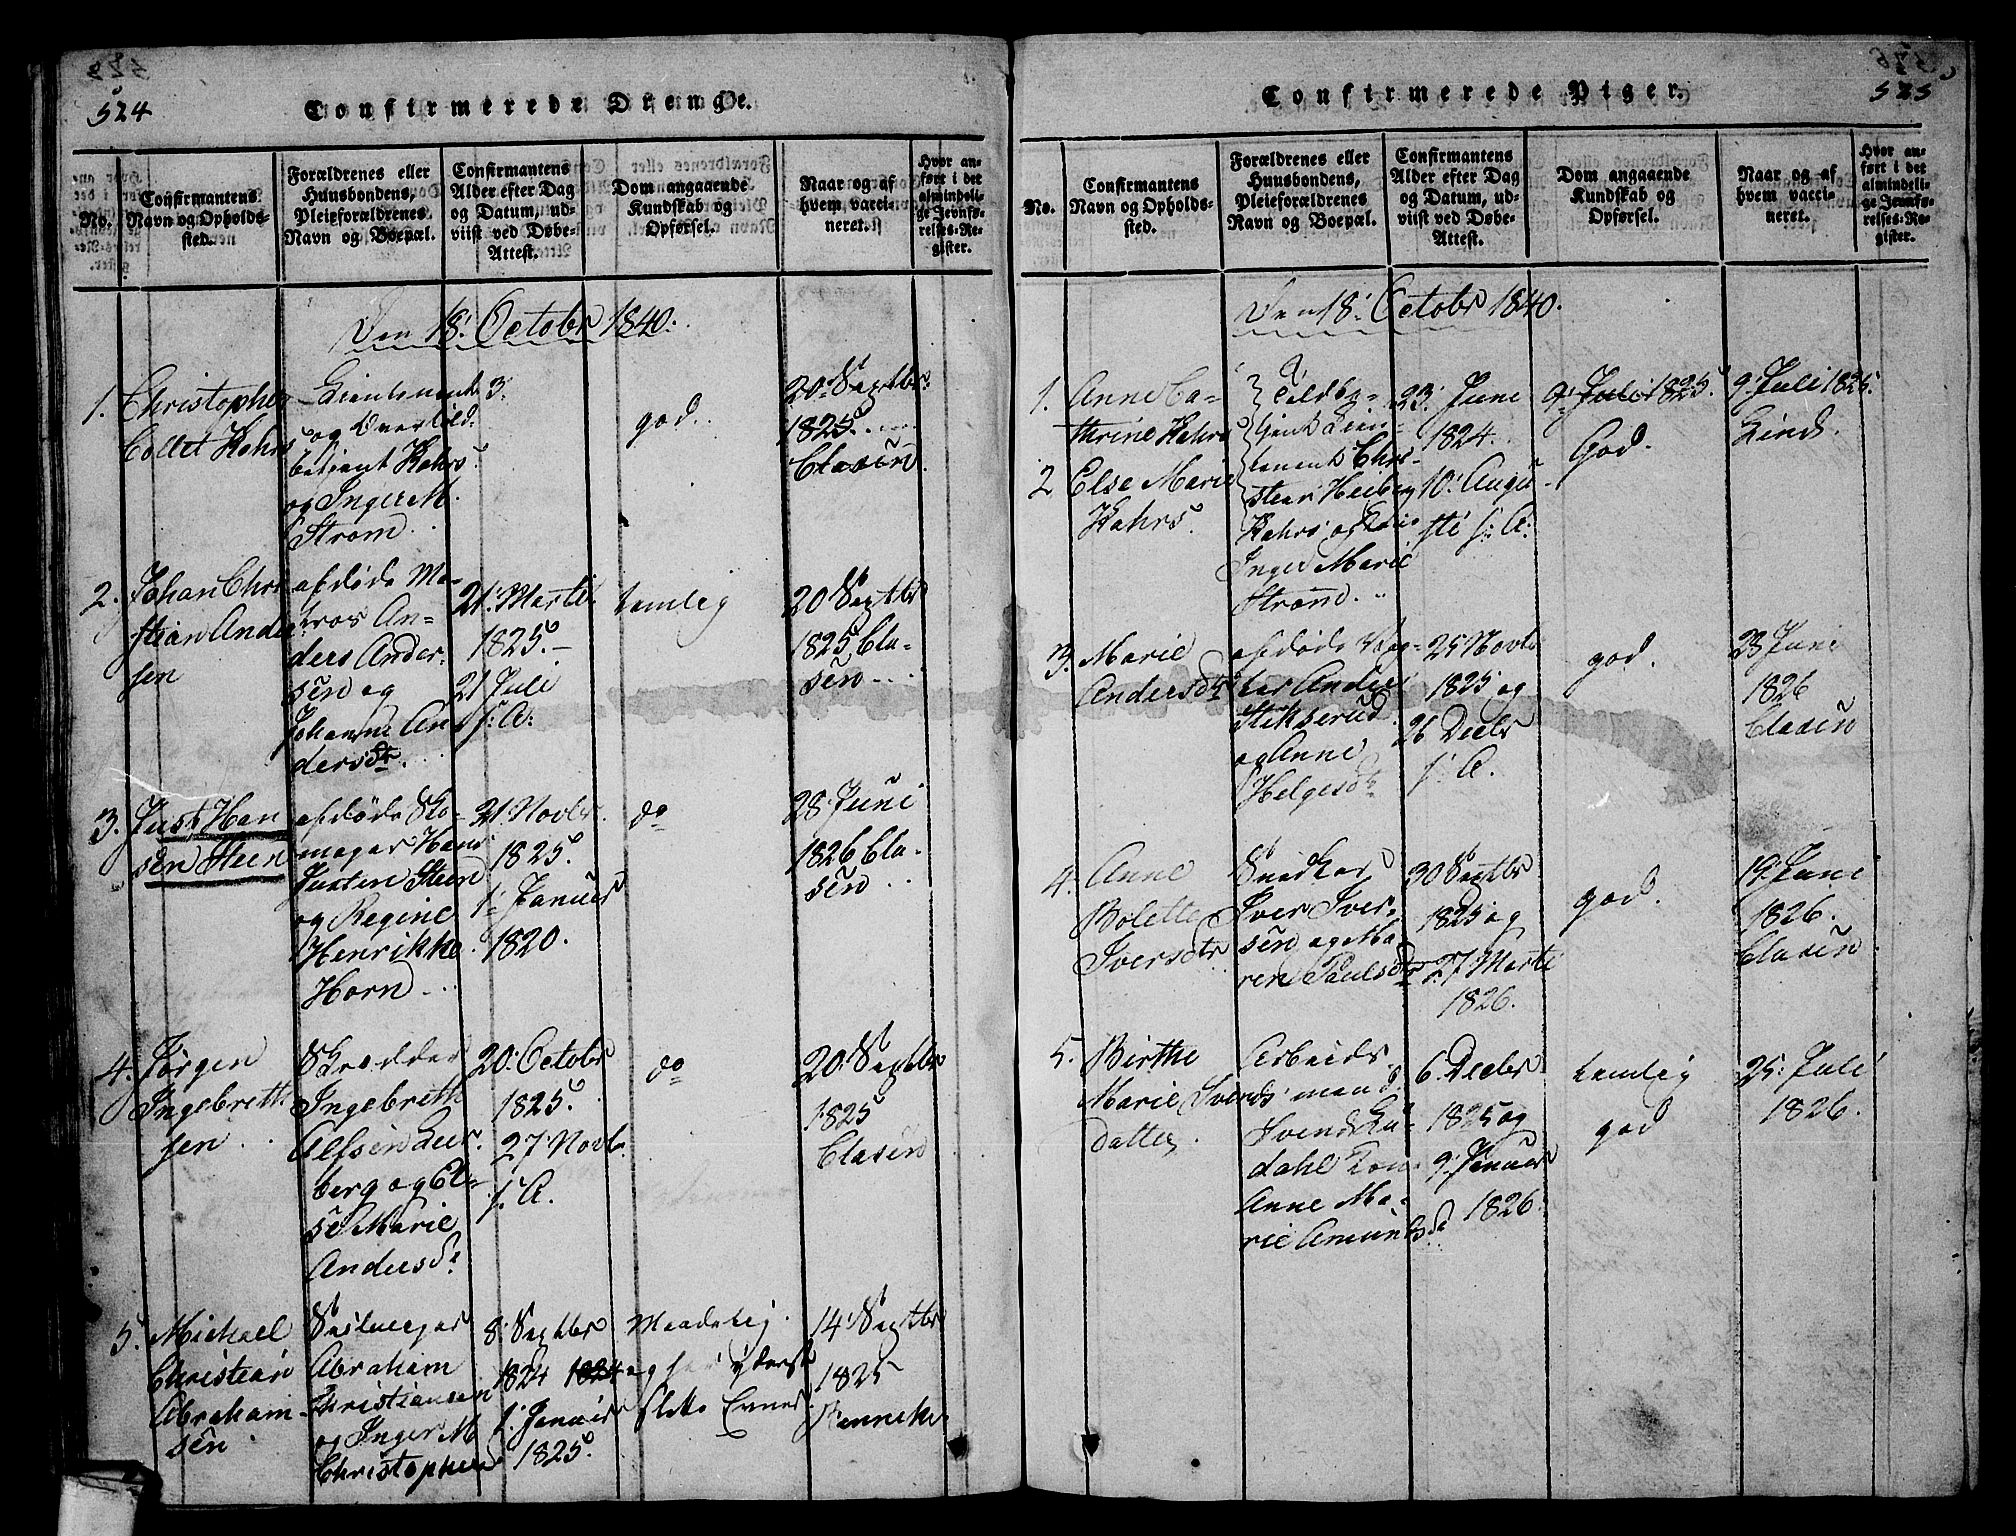 524
Confirmerede Drenge.
No.
Confirmantens
Navn og Opholds-
sted.
Forældrenes eller
Huusbondens,
Pleieforældrenes
Navn og Boepæl.
Confirmantens
Alder efter Dag
og Datum, ud-
viist ved Døbe-
Attest.
Dom angaaende
Kundskab og
Opførsel.
Naar og af
hvem vacci-
neret.
Hvor an-
ført i det
almindeli-
ge Jevnfø-
relses-Re-
gister.
Den 18' October 1840.
1.
Christopher
Collet Kahrs
Lieutenant
og Overtold-
betjent Kahrs
og Inger M.
Strøm
3'
god.
20 Septbr
1825
Clasen
2.
Johan Chri
stian Ander
sen
afdøde Ma-
tros An-
ders Ander-
sen og
Johanne An
dersdtr
21' Marti
1825.-
21 Juli
s: A:
temlig
20 Septbr
1825 Cla-
sen
3.
Just Han
sen Steen
afdøde Sko-
mager Hans
Justen Steen
og Regine
Henrikke
Horn
21 Novbr.
1825.
1' Januar
1820.
do
28 Juni
1826 Cla-
sen
4.
Jørgen
Ingebreth
sen
Skrædder
Ingebreth
Alfsen Leer-
berg og El-
se Marie
Andersd.
20' Octobr
1825.
27 Novb.
s. A.
do
20 Septbr
1825
Clasen
5.
Michael
Christian
Abraham-
sen
Seilmager
Abraham
Christiansen
og Inger M
Christophers
8' Septbr
1824 1824
1' Januar
1825.
Maadelig
og yderst
slette Evner
14' Septbr
1825
525
Confirmerede Piger.
No.
Confirmantens
Navn og Opholds-
sted.
Forældrenes eller
Huusbondens,
Pleieforældrenes
Navn og Boepæl.
Confirmantens
Alder efter Dag
og Datum, ud-
viist ved Døbe-
Attest.
Dom angaaende
Kundskab og
Opførsel.
Naar og af
hvem vacci-
neret.
Hvor an-
ført i det
almindeli-
ge Jevnfø-
relses-Re-
gister.
Den 18' October 1840.
1.
Anne Ca-
thrine Kahrs
2
Else Marie
Kahrs.
Toldbe-
tjent Lieu-
tenant Chri-
stian Heiberg
Kahrs og
Inger Marie
Strøm.
23' Juni
1824.
10' Augu-
sti s: A:
9' Juli 1825.
God.
9' Juli 1825.
Lind.
3.
Marie
Andersdtr
afdøde Væg-
ter Anders
Stikserud
og Anne
Helgesdtr
25 Novbr
1825 og
26 Decbr
s. A.
god.
23 Juni
1826
Clasen
4.
Anne
Bolette
Iversdtr
Snedker
Iver Iver-
sen og Ma-
ren Paulsdtr
30 Septbr
1825 og
27 Marti
1826.
god.
19' Juni
1826.
Clasen
5.
Birthe
Marie Svends
datter.
Arbeids-
mand
Svend
dahl
Anne Ma-
rie Amundsd.
6. Decbr
1825 og
9' Januar
1826.
temlig
god
25: Juli
1826.